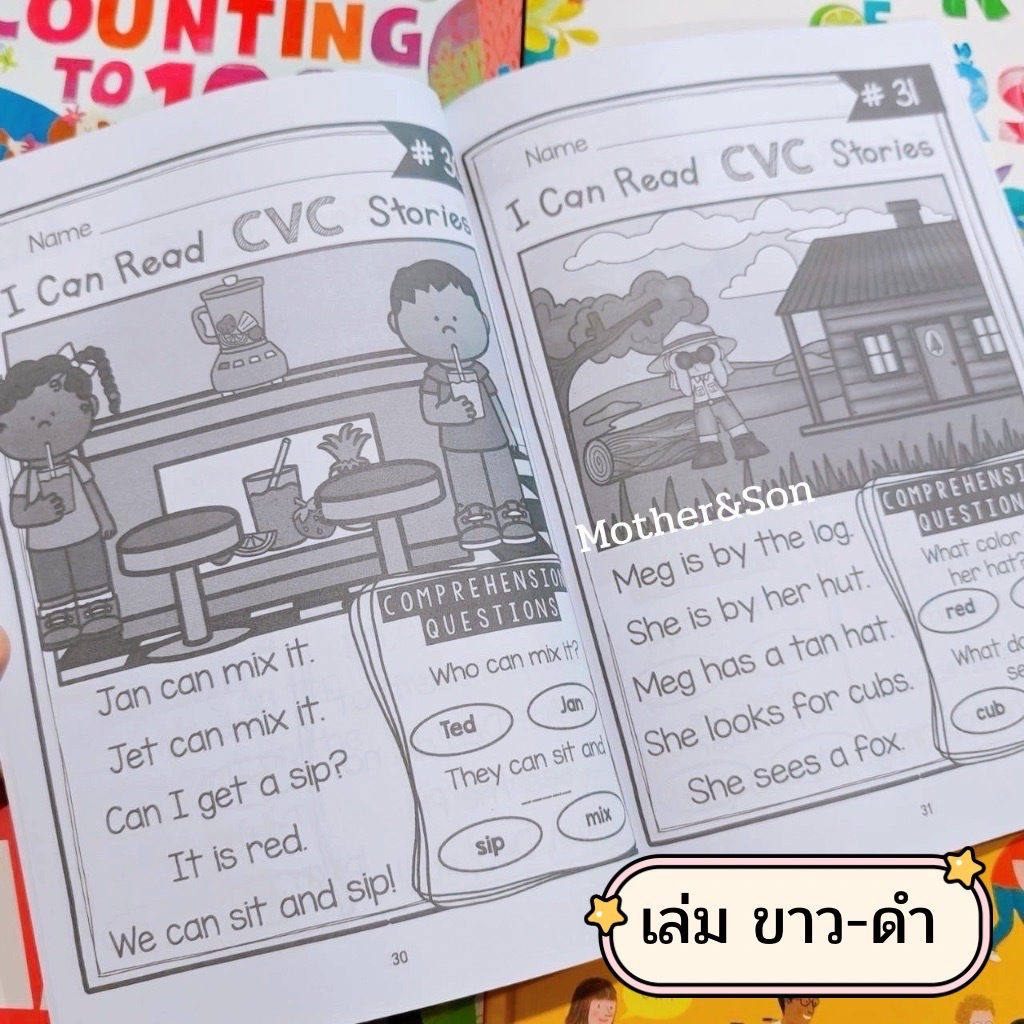 COUNTING
TO 10
# 3
Name
I Can Read CVC Stories
Jan can mix it.
Jet can mix it.
Can I get a sip?
It is red.
We can sit and sip!
COMPREHENSION
QUESTIONS
Who can mix it?
Ted
Jan
They can sit and
____
sip
mix
30
# 31
Name
I Can Read CVC Stories
Mother&Son
Meg is by the log.
She is by her hut.
Meg has a tan hat.
She looks for cubs.
She sees a fox.
COMPREHENSI
QUESTION
What color
her hat?
red
What do
se
cub
31
เล่ม ขาว-ดำ